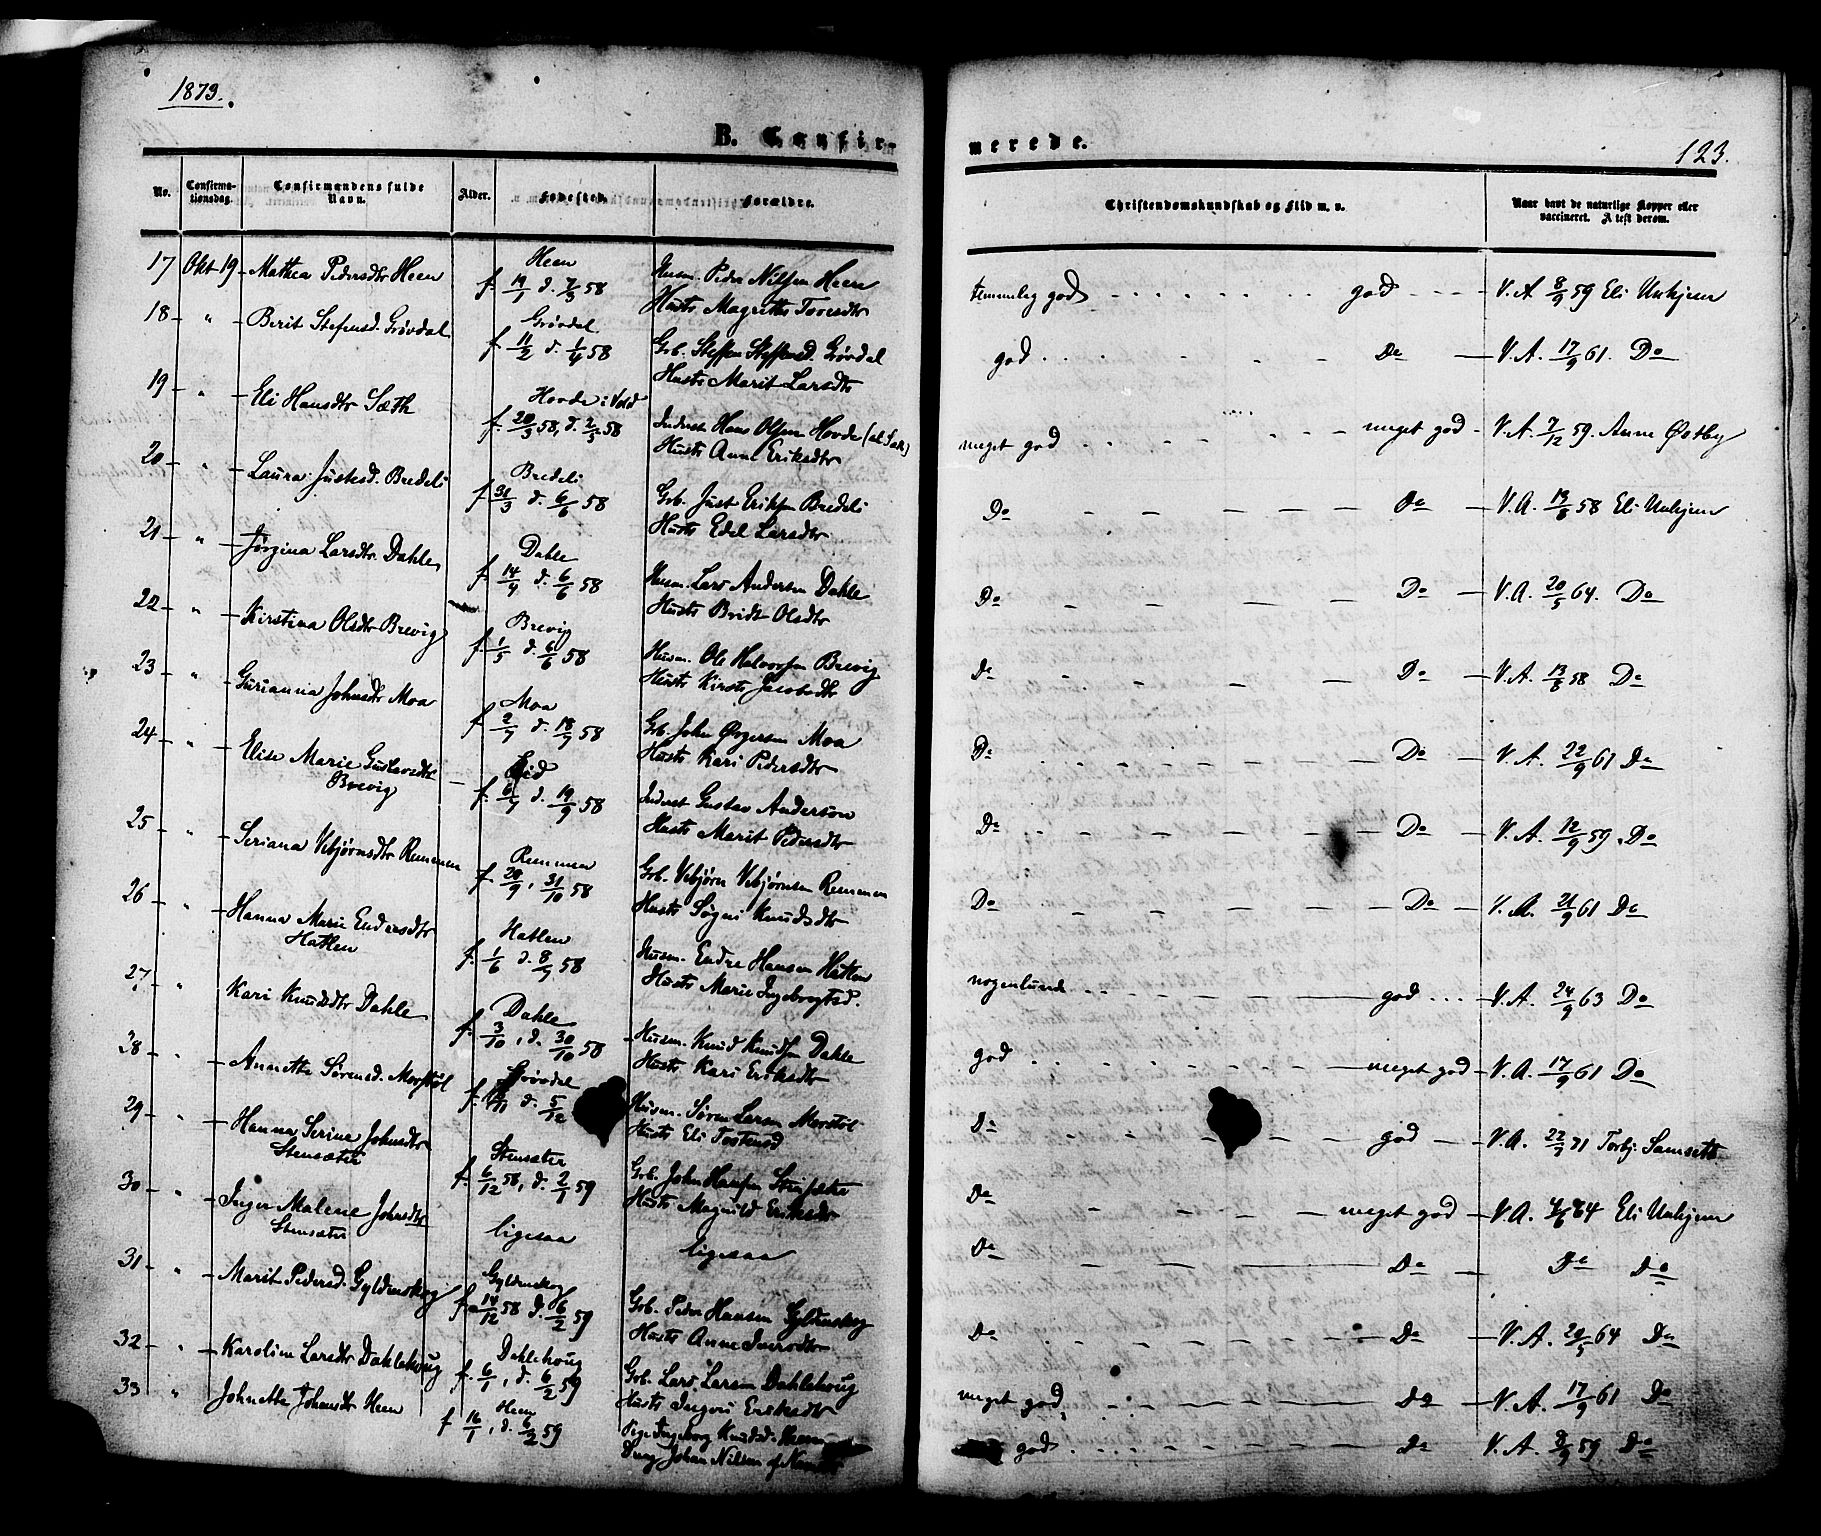 1873.
B. Confir-
merede.
123.
No.
Confirma-
tionsdag.
Confirmandens fulde
Navn.
Alder.
Fødested.
Forældre.
Christendomskundskab og Flid m. v.
Naar havt de naturlige Kopper eller
vaccineret. Attest derom.
17 Okt 19 Mathea Pedersdtr Heen
Heen
f. 19/1 d. 7/3 58
Husm. Peder Nilsen Heen
Hustr Magrethe Toresdtr
temmelig god god V. A. 8/9 59 Eli Unhjem
18 " Berit Stefensd. Grövdal
Grövdal
f. 11/2 d. 1/4 58
Grb. Steffen Steffensd. Grövdal
Hustr Marit Larsdtr
god Do V. A. 17/9 61. Do
19 " Eli Hansdtr Sæth
Hovde i Vold
f. 20/3 58, d. 2/5 58
Inderst Hans Olsen Hovde
Hustr Anne Eriksdtr
meget god meget god V. A. 7/12 59. Anne Østby
20 " Laura Justesd. Bredeli
Bredeli
f. 31/3 d. 6/6 58
Grb. Just Eriksen Bredeli
Hustr Edel Larsdtr
Do Do V. A. 13/8 58 Eli Unhjem
21 " Jørgina Larsdtr Dahle
Dahle
f. 14/4 d. 6/6 58
Husm. Lars Andersen Dahle
Hustr Bridt Olsdtr
Do Do V. A. 20/5 64. Do
22 " Kirstina Olsdtr Brevig
Brevig
f. 1/5 d. 6/6 58
Husm. Ole Halvorsen Brevig
Hustr Kirsti Jacobsdtr
Do Do V. A. 13/8 58 Do
23 " Gurianna Johnsdtr Moa
Moa
f. 2/7 d. 18/7 58
Grb. John Ørgersen Moa
Hustr Kari Pedersdtr
Do Do V. A. 22/9 61 Do
24 " Elise Marie Gustavsdtr
Brevig
Lid
f. 6/7 d. 19/9 58
Inderst Gustav Anderson
Hustr Marit Pedersdtr
Do Do V. A. 12/9 59. Do
25 " Seriana Vebjørnsdtr Remmen
Remmen
f. 20/9, 31/10 58
Grb. Vebjørn Vebjørnsen Remmen
Hustr Søgni Knudsdtr
Do Do V. A. 21/9 61 Do
26 " Hanna Marie Endresdtr
Hatlen
Hatlen
f. 1/6 d. 8/7 58
Husm. Endre Hansen Hatlen
Hustr Marie Ingebrigtsd.
nogenlunde god V. A. 24/9 63 Do
27 " Kari Knudsdtr Dahle
Dahle
f. 3/10, d. 30/10 58
Husm. Knud Knudsen Dahle
Hustr Kari Eriksdtr
god meget god V. A. 17/9 61 Do
28 " Annette Sörensd. Morstöl
Grövdal
d. 5/12
Husm. Sören Larsen Morstöl
Hustr Eli Tostensd
Do god V. A. 22/7 71 Torbj. Samseth
29 " Hanna Serine Johnsdtr
Stensæter
Stensæter
f. 6/12 58, d. 2/1 59
Grb. John Hansen Stensæter
Hustr Magnild Eriksdtr
Do meget god V. A. 64 Eli Unhjem
30 " Inger Malene Johnsdtr
Stensæter
ligesaa ligesaa
Do Do Do Do
31 " Marit Pedersd. Gyldenskog
Gyldenskog
f. 14/12 58 d. 6/2 59
Grb. Peder Hansen Gyldenskog
Hustr Anne Iversdtr
Do Do V. A. 20/5 64 Do
32 " Karoline Larsdtr Dahlehoug
Dahlehoug
f. 6/1, d. 6/2 59
Grb. Lars Larsen Dahlehoug
Hustr Ingeri Eriksdtr
meget god Do V. A. 17/9 61 Do
33 " Johnette Johansdtr Heen
Heen
f 16/1, d. 6/2 59
Pige Ingeborg Knudsd. Heen
Ung. Johan Nilsen
god Do V. A. 8/9 59. Do